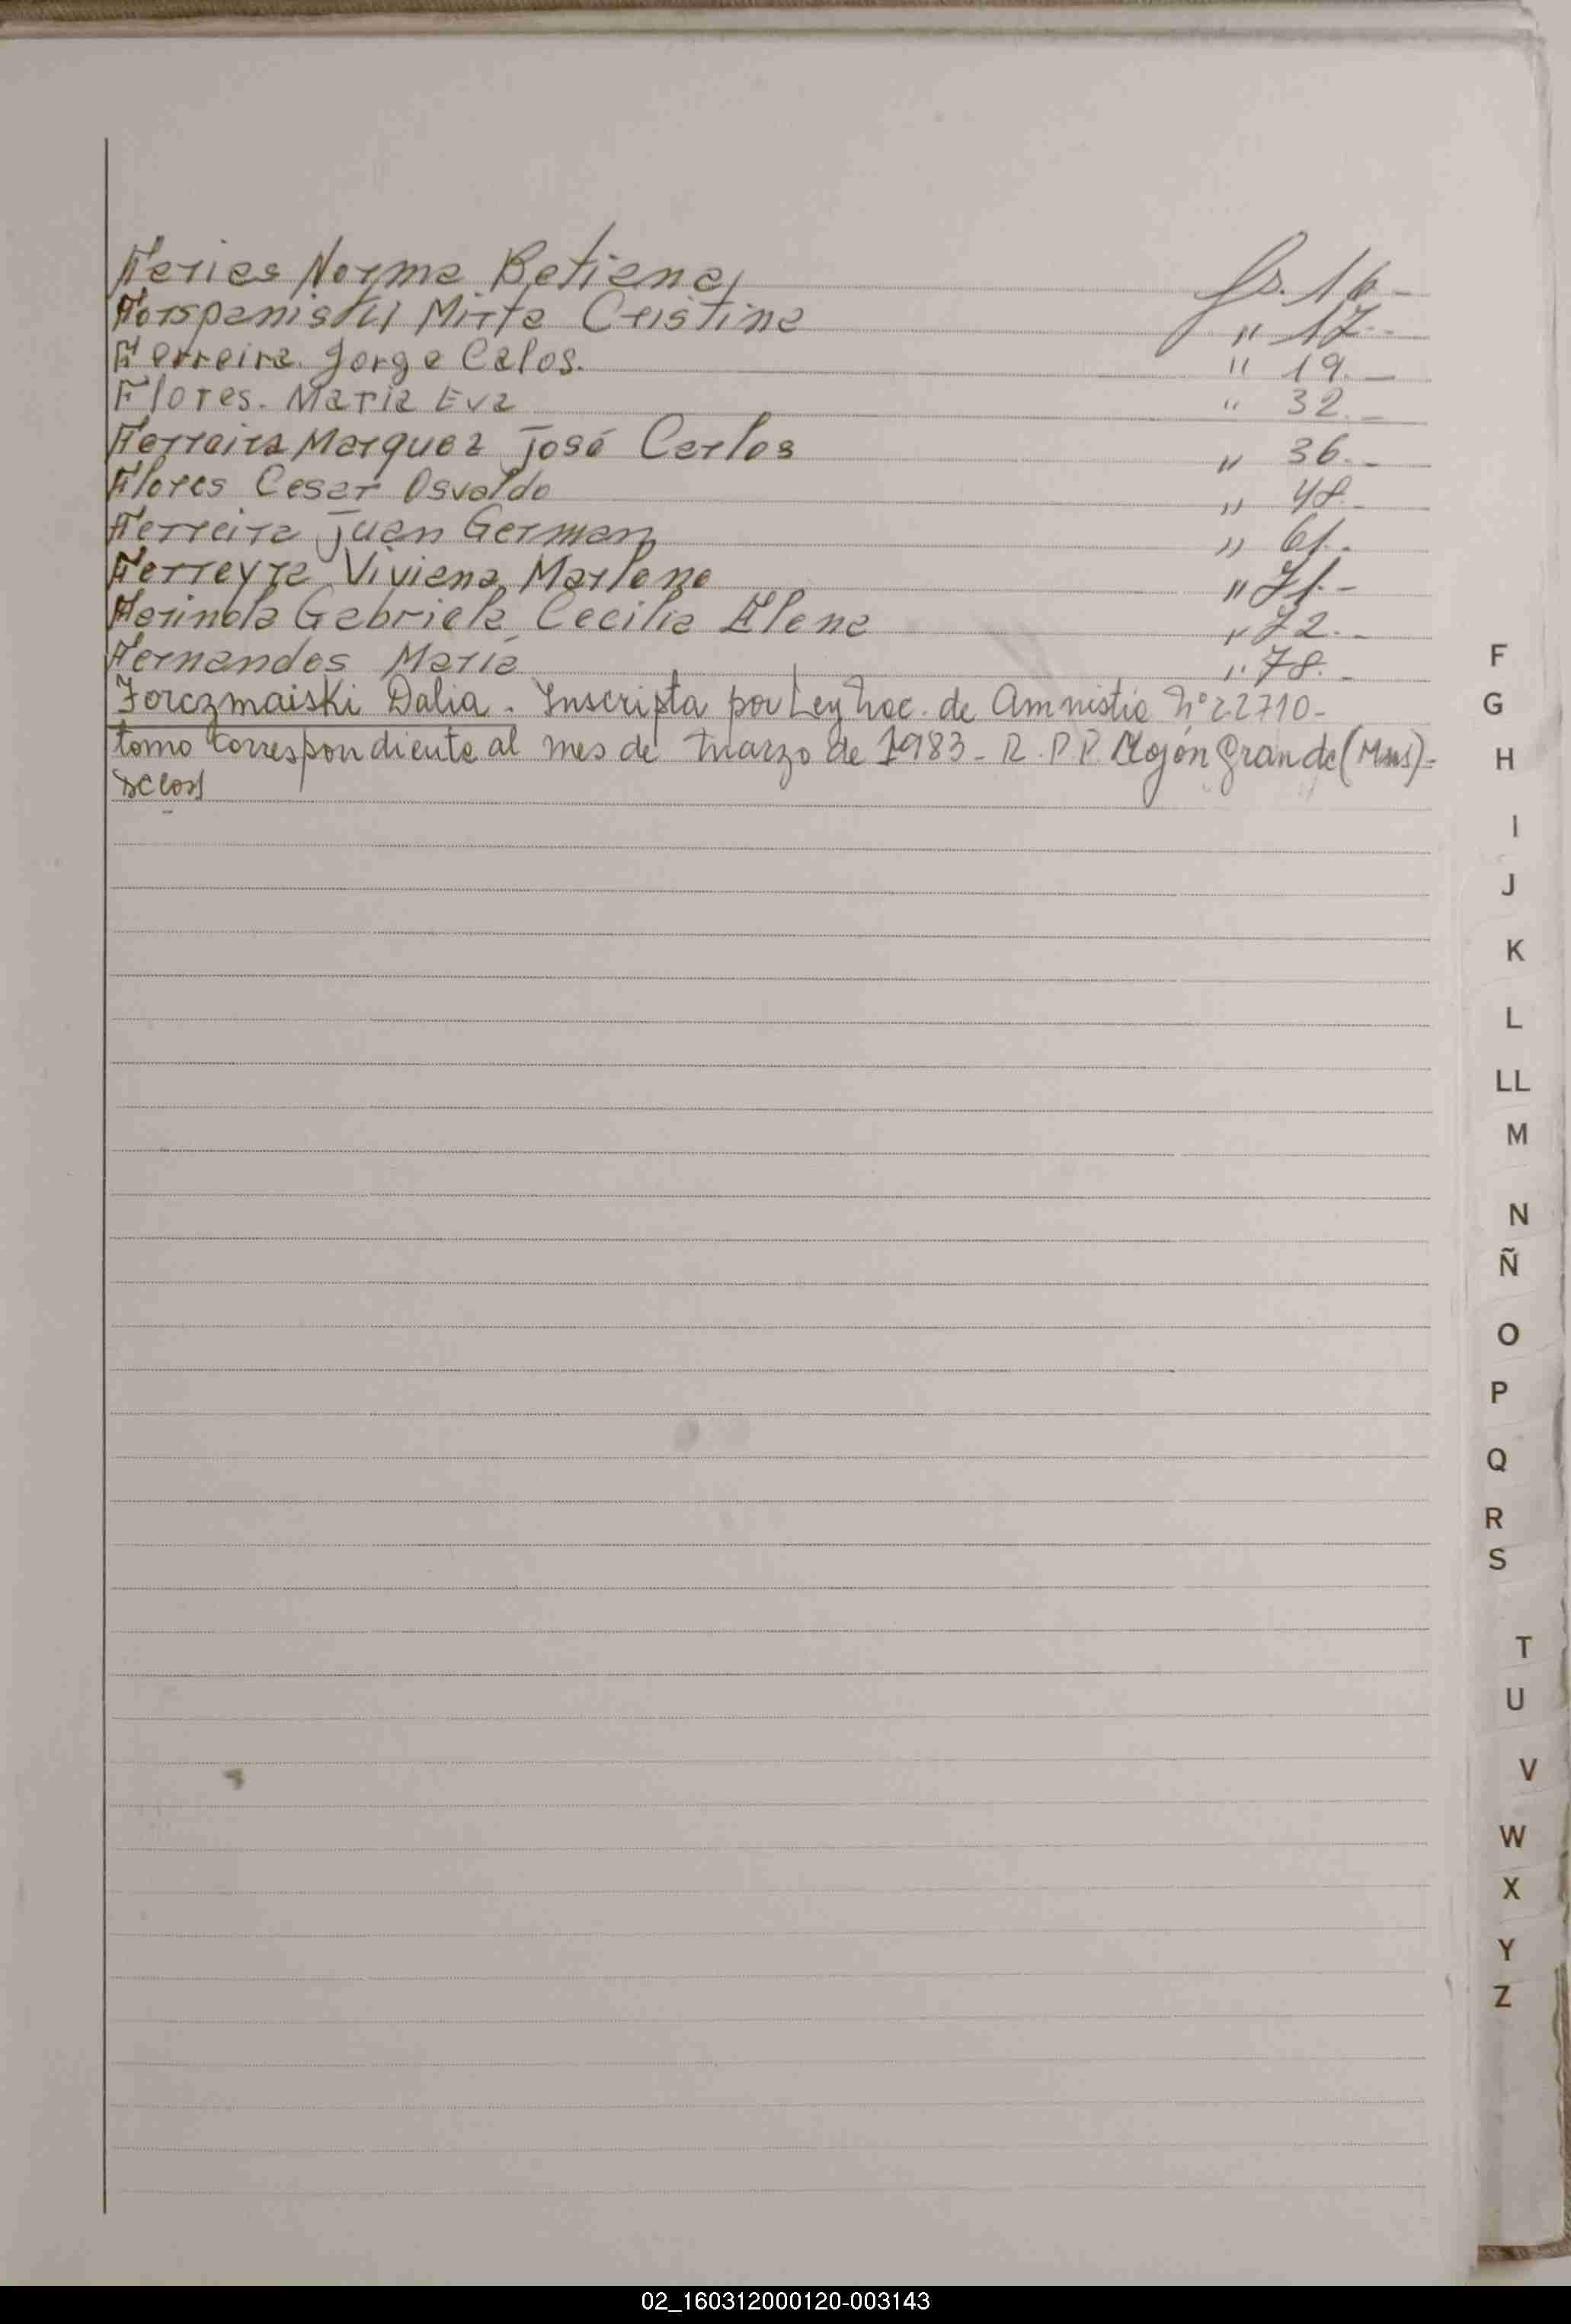 Farias Norma Betiana fs. 16-
Forspaniski Mirta Cristina " 17.-
Ferreira Jorge Calos. " 19.-
Flores. Maria Eva " 32.-
Ferreira Marquez José Carlos " 36.-
Flores Cesar Osvaldo " 48.-
Ferreira Juan German " 61.-
Ferreyra Viviana Marlene " 71.-
Farinola Gabriela Cecilia Elena " 72.-
Fernandes Maria " 78.-
Forczmaiski Dalia. Inscripta por Ley Nac. de Amnistia Nº 22710-
tomo correspondiente al mes de Marzo de 1983- R.P.P. Mojón Grande (Mnes)-
F
G
H
I
J
K
L
LL
M
N
Ñ
O
P
Q
R
S
T
U
V
W
X
Y
Z
02_160312000120-003143